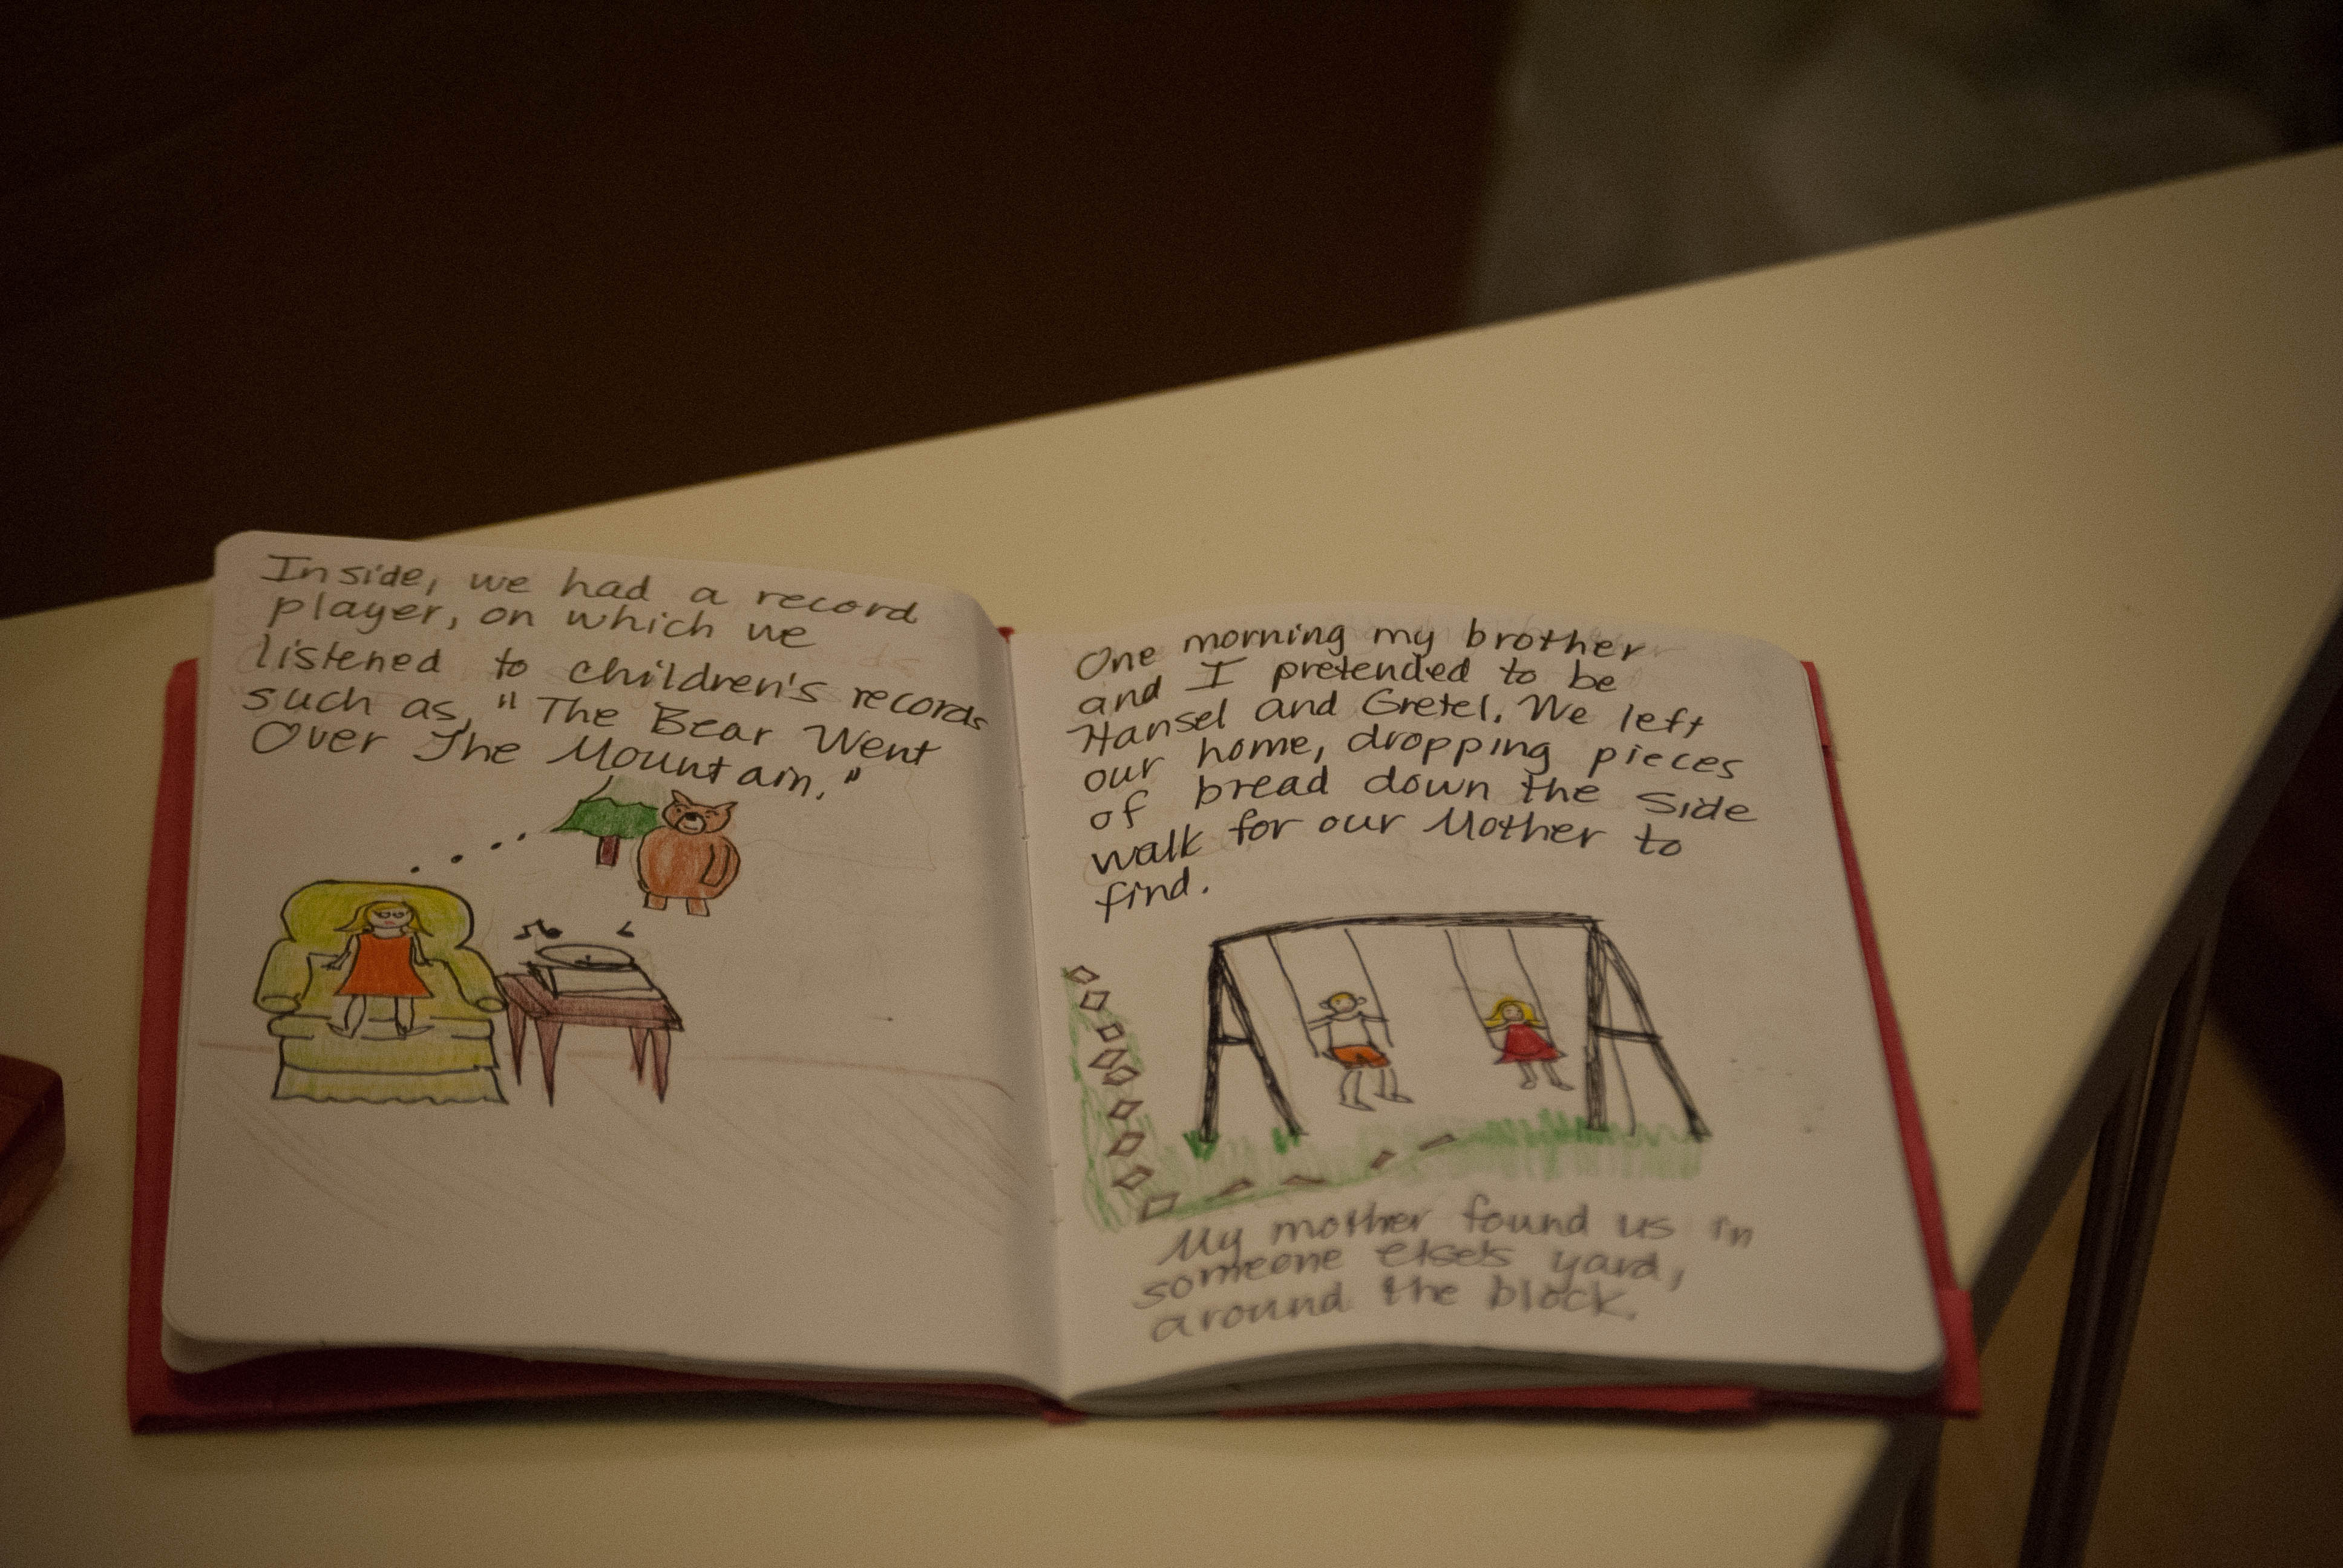 Inside, we had a record
player, on which we
listened to children's records
such as, "The Bear Went
Over The Mountain."
One morning my brother
and I pretended to be
Hansel and Gretel. We left
our home, dropping pieces
of bread down the side
walk for our Mother to
find.
My mother found us in
someone else's yard,
around the block.